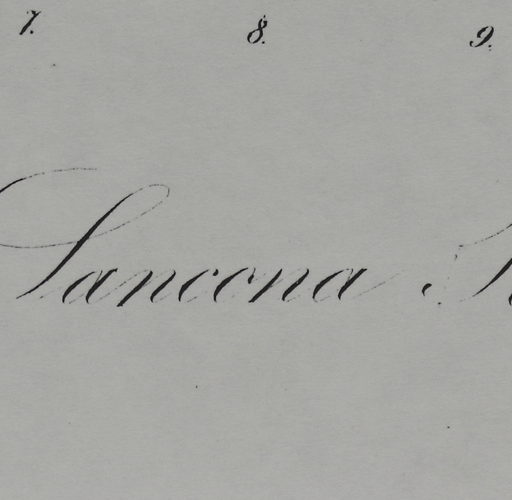 7. 8. 9.
Lancona